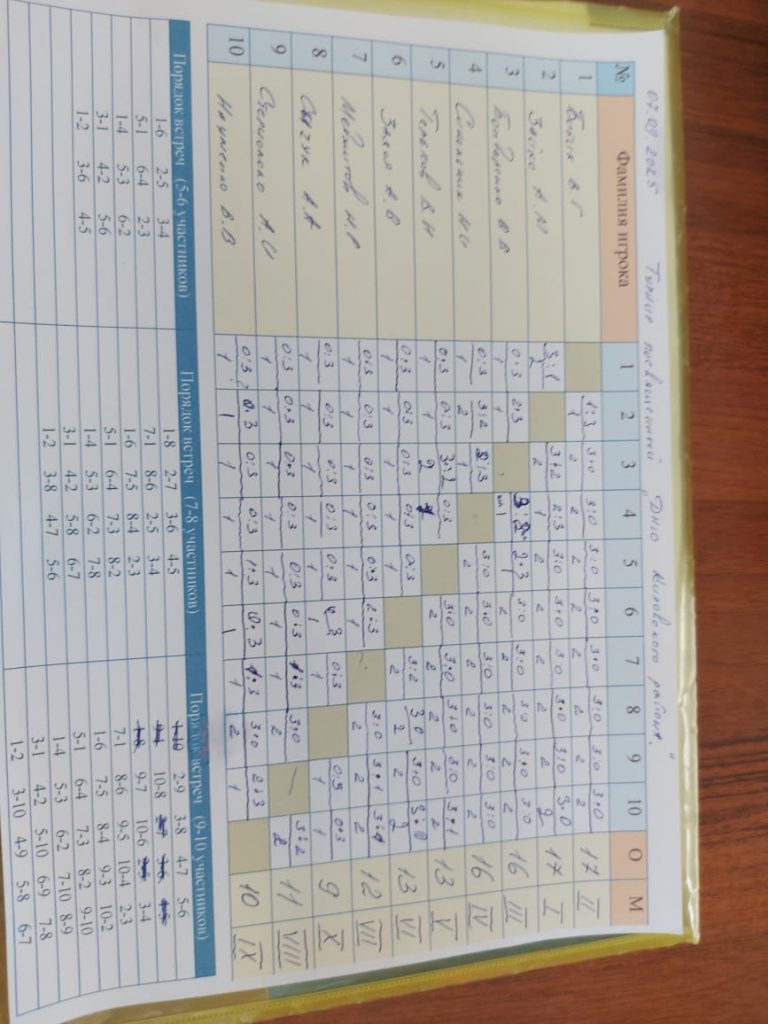 07.09.2025 Турнир посвященный "Дню Кировского района"
№ Фамилия игрока 1 2 3 4 5 6 7 8 9 10 О М
1 В Г 1:3 3:0 3:0 3:0 3:0 3:0 3:0 3:0 3:0 17 II
1 2 2 2 2 2 2 2 2
2 Зайко А.М 3:1 3:2 2:3 3:0 3:0 3:0 3:0 3:0 3:0 17 I
2 2 1 2 2 2 2 2 2
3 Бондаренко В В 0:3 2:3 2:3 3:0 3:0 3:0 3:0 3:0 16 III
1 1 2 2 2 2 2
4 0:3 3:2 2:3 3:0 3:0 3:0 3:0 3:0 3:0 16 IV
1 2 1 2 2 2 2 2 2
5 В Н 0:3 0:3 3:2 0:3 3:0 3:0 3:0 3:0 3:1 13 V
1 1 2 2 2 2 2 2
6 А.В 0:3 0:3 0:3 0:3 0:3 3:2 3:0 3:0 3:0 13 VI
1 1 1 1 1 2 2 2 2
7 Н.Р 0:3 0:3 0:3 0:3 0:3 2:3 3:0 3:1 3:1 12 VII
1 1 1 1 1 1 2 2 2
8 А.А 0:3 0:3 0:3 0:3 0:3 0:3 0:3 0:3 9 X
1 1 1 1 1 1 1 1 1
9 А.И 0:3 0:3 0:3 0:3 0:3 0:3 1:3 3:0 3:2 11 VIII
1 1 1 1 1 1 1 2 2
10 Науменко В.В 0:3 0:3 0:3 0:3 1:3 0:3 1:3 3:0 2:3 10 IX
1 1 1 1 1 1 1 2 1
Порядок встреч (5-6 участников)
1-6 2-5 3-4
5-1 6-4 2-3
1-4 5-3 6-2
3-1 4-2 5-6
1-2 3-6 4-5
Порядок встреч (7-8 участников)
1-8 2-7 3-6 4-5
7-1 8-6 2-5 3-4
1-6 7-5 8-4 2-3
5-1 6-4 7-3 8-2
1-4 5-3 6-2 7-8
3-1 4-2 5-8 6-7
1-2 3-8 4-7 5-6
Порядок встреч (9-10 участников)
1-10 2-9 3-8 4-7 5-6
9-1 10-8 2-7 3-6 4-5
1-8 9-7 10-6 2-5 3-4
7-1 8-6 9-5 10-4 2-3
1-6 7-5 8-4 9-3 10-2
5-1 6-4 7-3 8-2 9-10
1-4 5-3 6-2 7-10 8-9
3-1 4-2 5-10 6-9 7-8
1-2 3-10 4-9 5-8 6-7